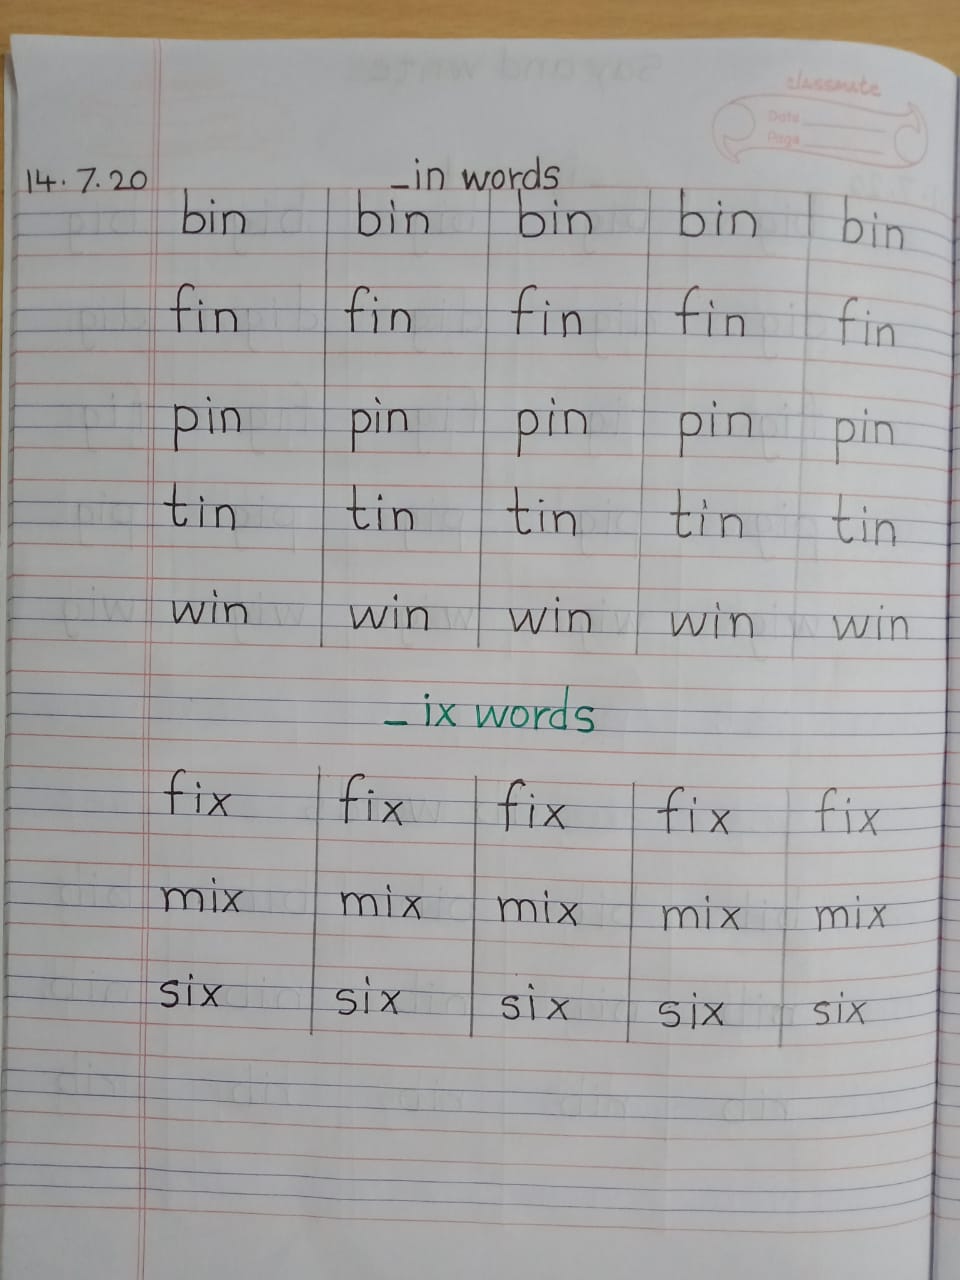 classmate
Date
Page
14.7.20 _in words
bin bin bin bin bin
fin fin fin fin fin
pin pin pin pin pin
tin tin tin tin tin
win win win win win
_ix words
fix fix fix fix fix
mix mix mix mix mix
six six six six six